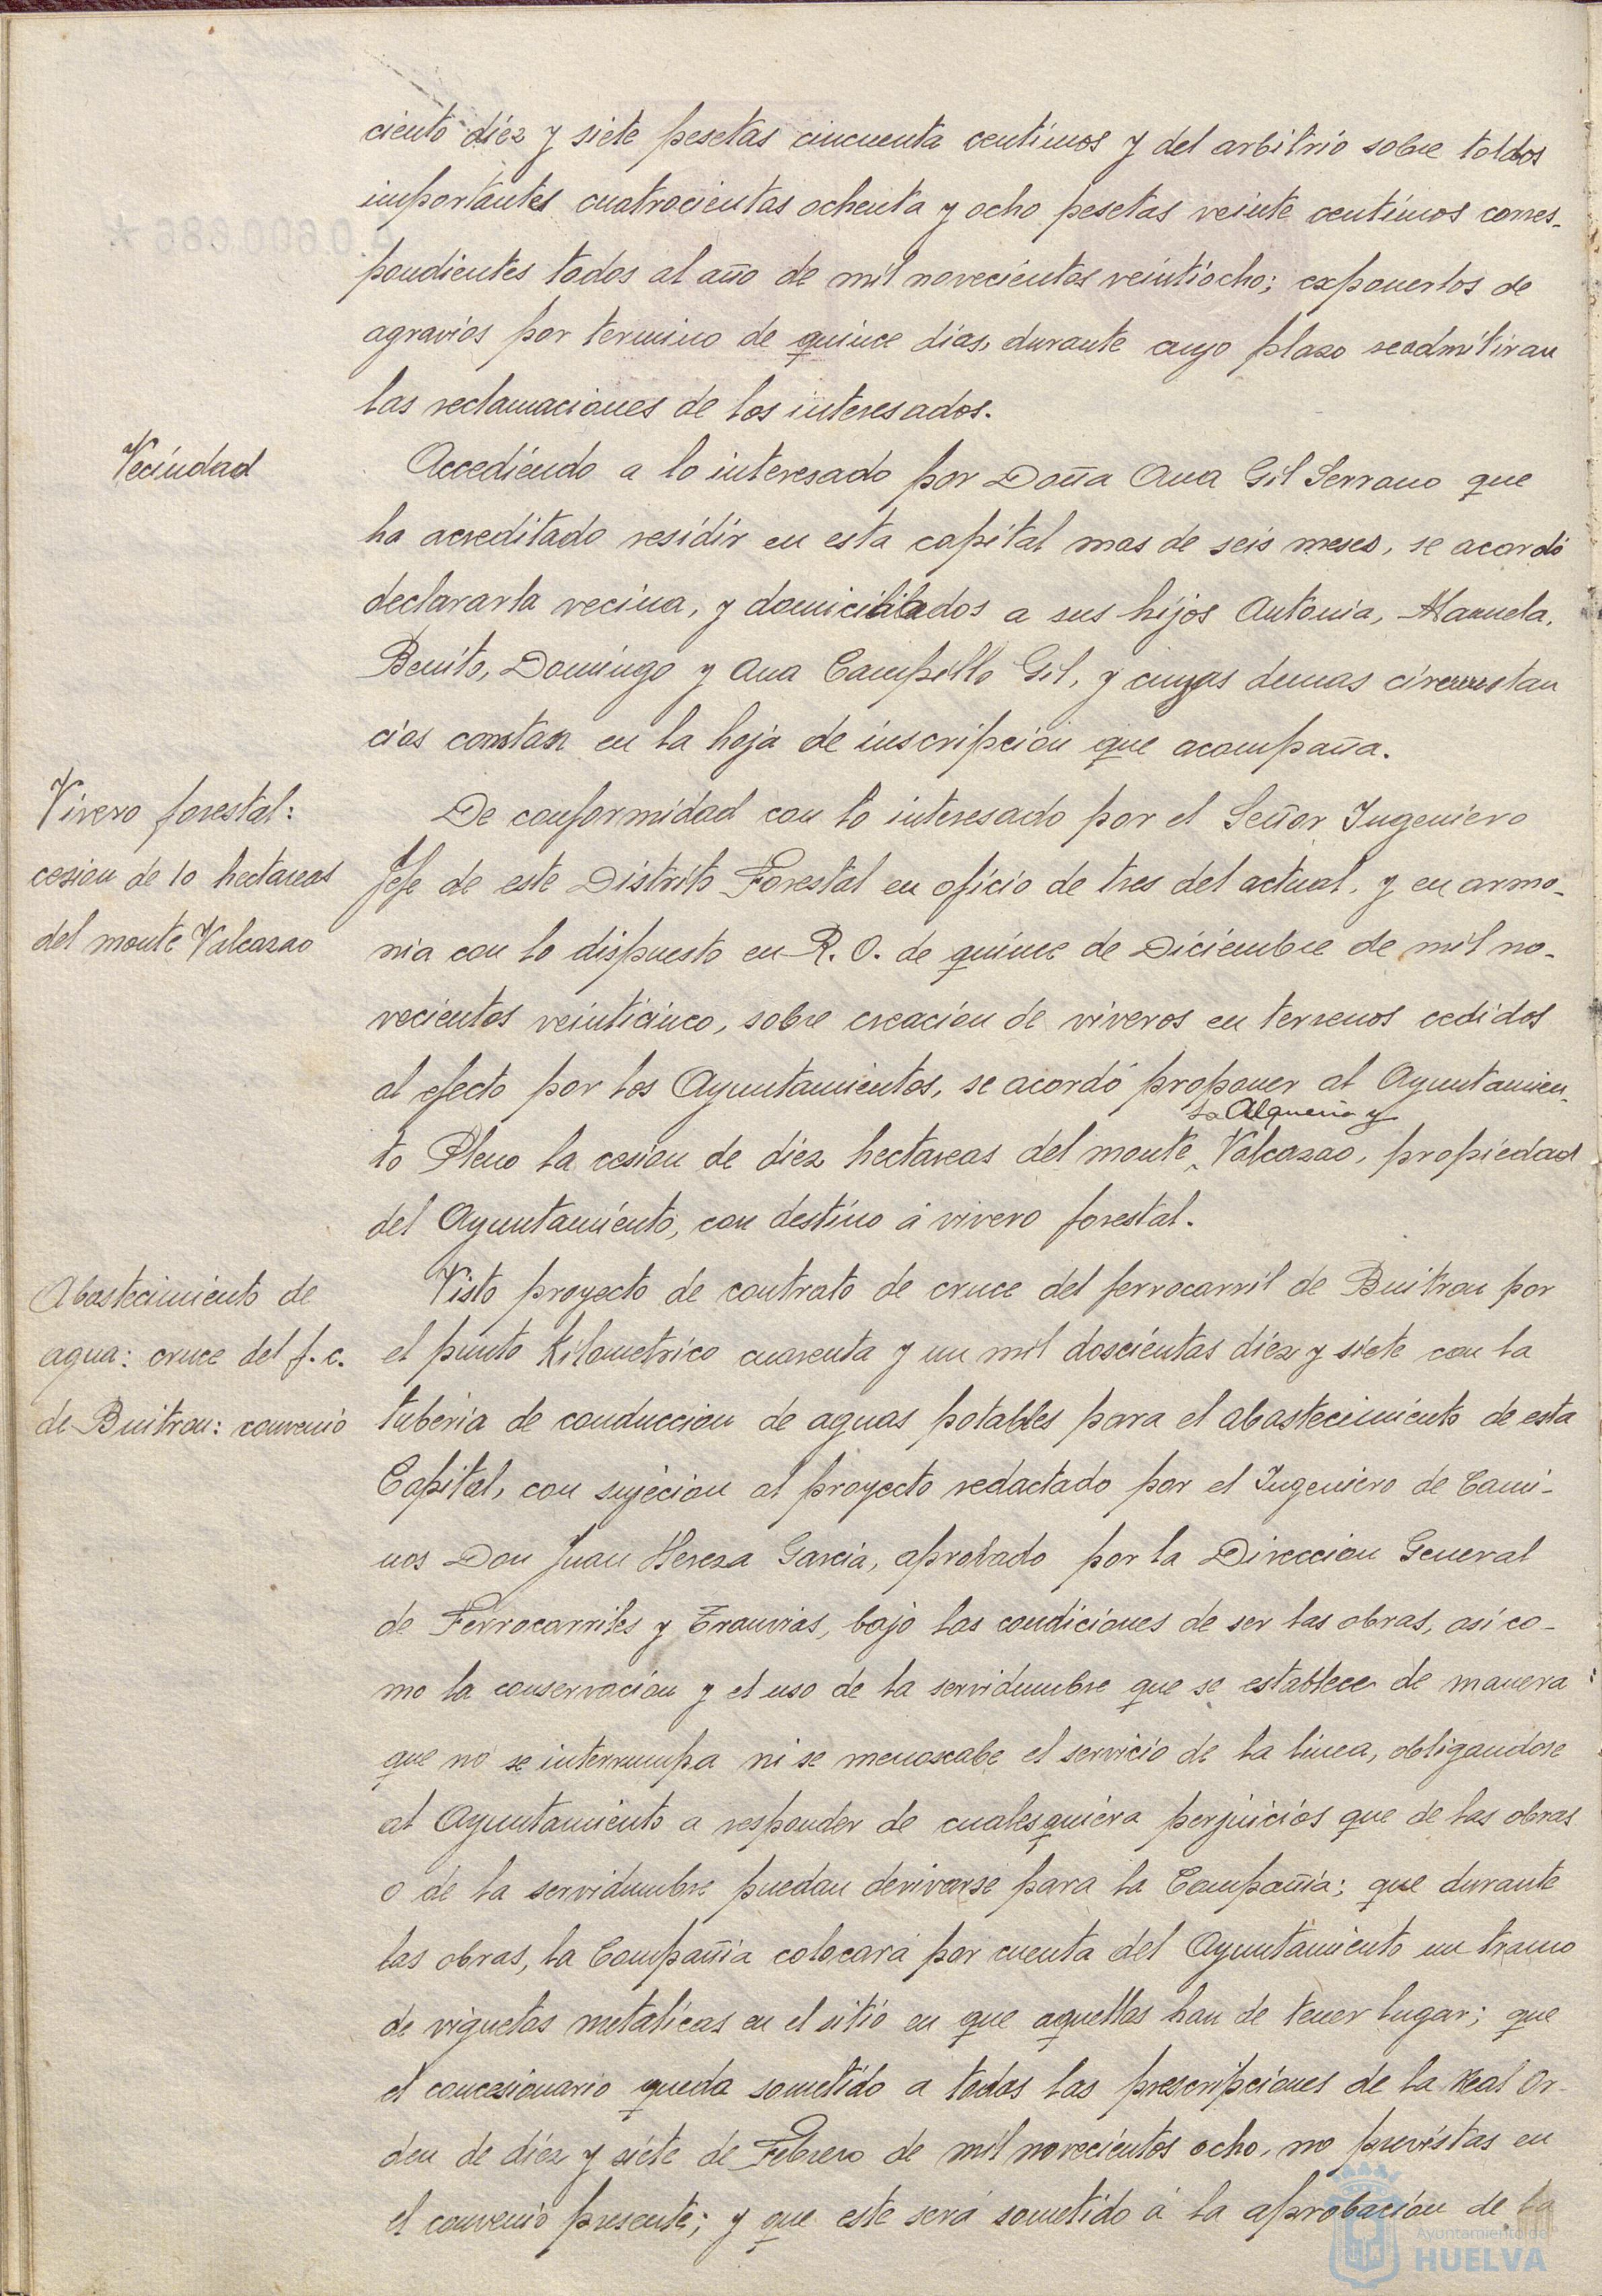 ciento diéz y siete pesetas cincuenta centimos y del arbitrio sobre toldos
importantes cuatrocientas ochenta y ocho pesetas veinte centimos corres-
pondientes todos al año de mil novecientos veintiocho; exponerlos de
agravios por termino de quince dias, durante cuyo plazo se admitiran
las reclamaciones de los interesados.
Vecindad
Accediendo a lo interesado por Doña Ana Gil Serrano que
ha acreditado residir en esta capital mas de seis meses, se acordó
declararla vecina, y domiciliados a sus hijos Antonia, Manuela,
Benito, Domingo y Ana Campillo Gil, y cuyas demas circunstan
cias constan en la hoja de inscripcion que acompaña.
Vivero forestal:
cesion de 10 hectareas
del monte Valcazao
De conformidad con lo interesado por el Señor Ingeniero
Jefe de este Distrito Forestal en oficio de tres del actual, y en armo-
nia con lo dispuesto en R. O. de quince de Diciembre de mil no-
vecientos veinticinco, sobre creacion de viveros en terrenos cedidos
al efecto por los Ayuntamientos, se acordó proponer al Ayuntamien-
La Alqueria y
to Pleno la cesion de diéz hectareas del monte Valcazao, propiedad
del Ayuntamiento, con destino á vivero forestal.
Abastecimiento de
agua: cruce del f. c.
de Buitron: convenio
Visto proyecto de contrato de cruce del ferrocarril de Buitron por
el punto Kilometrico cuarenta y un mil doscientas diéz y siete con la
tuberia de conduccion de aguas potables para el abastecimiento de esta
Capital, con sujecion al proyecto redactado por el Ingeniero de Cami-
nos Don Juan Hereza Garcia, aprobado por la Direccion General
de Ferrocarriles y Tranvias, bajo las condiciones de ser las obras, asi co-
mo la conservacion y el uso de la servidumbre que se establece de manera
que no se interrumpa ni se menoscabe el servicio de la linea, obligandose
al Ayuntamiento a responder de cualesquiera perjuicios que de las obras
o de la servidumbre puedan derivarse para la Compañia; que durante
las obras, la Compañia colocará por cuenta del Ayuntamiento un tramo
de viguetas metalicas en el sitio en que aquellas han de tener lugar; que
el concesionario queda sometido a todas las prescripciones de la Real Or-
den de diéz y siete de Febrero de mil novecientos ocho, no previstas en
el convenio presente; y que este será sometido á la aprobacion de la
Ayuntamiento de
HUELVA